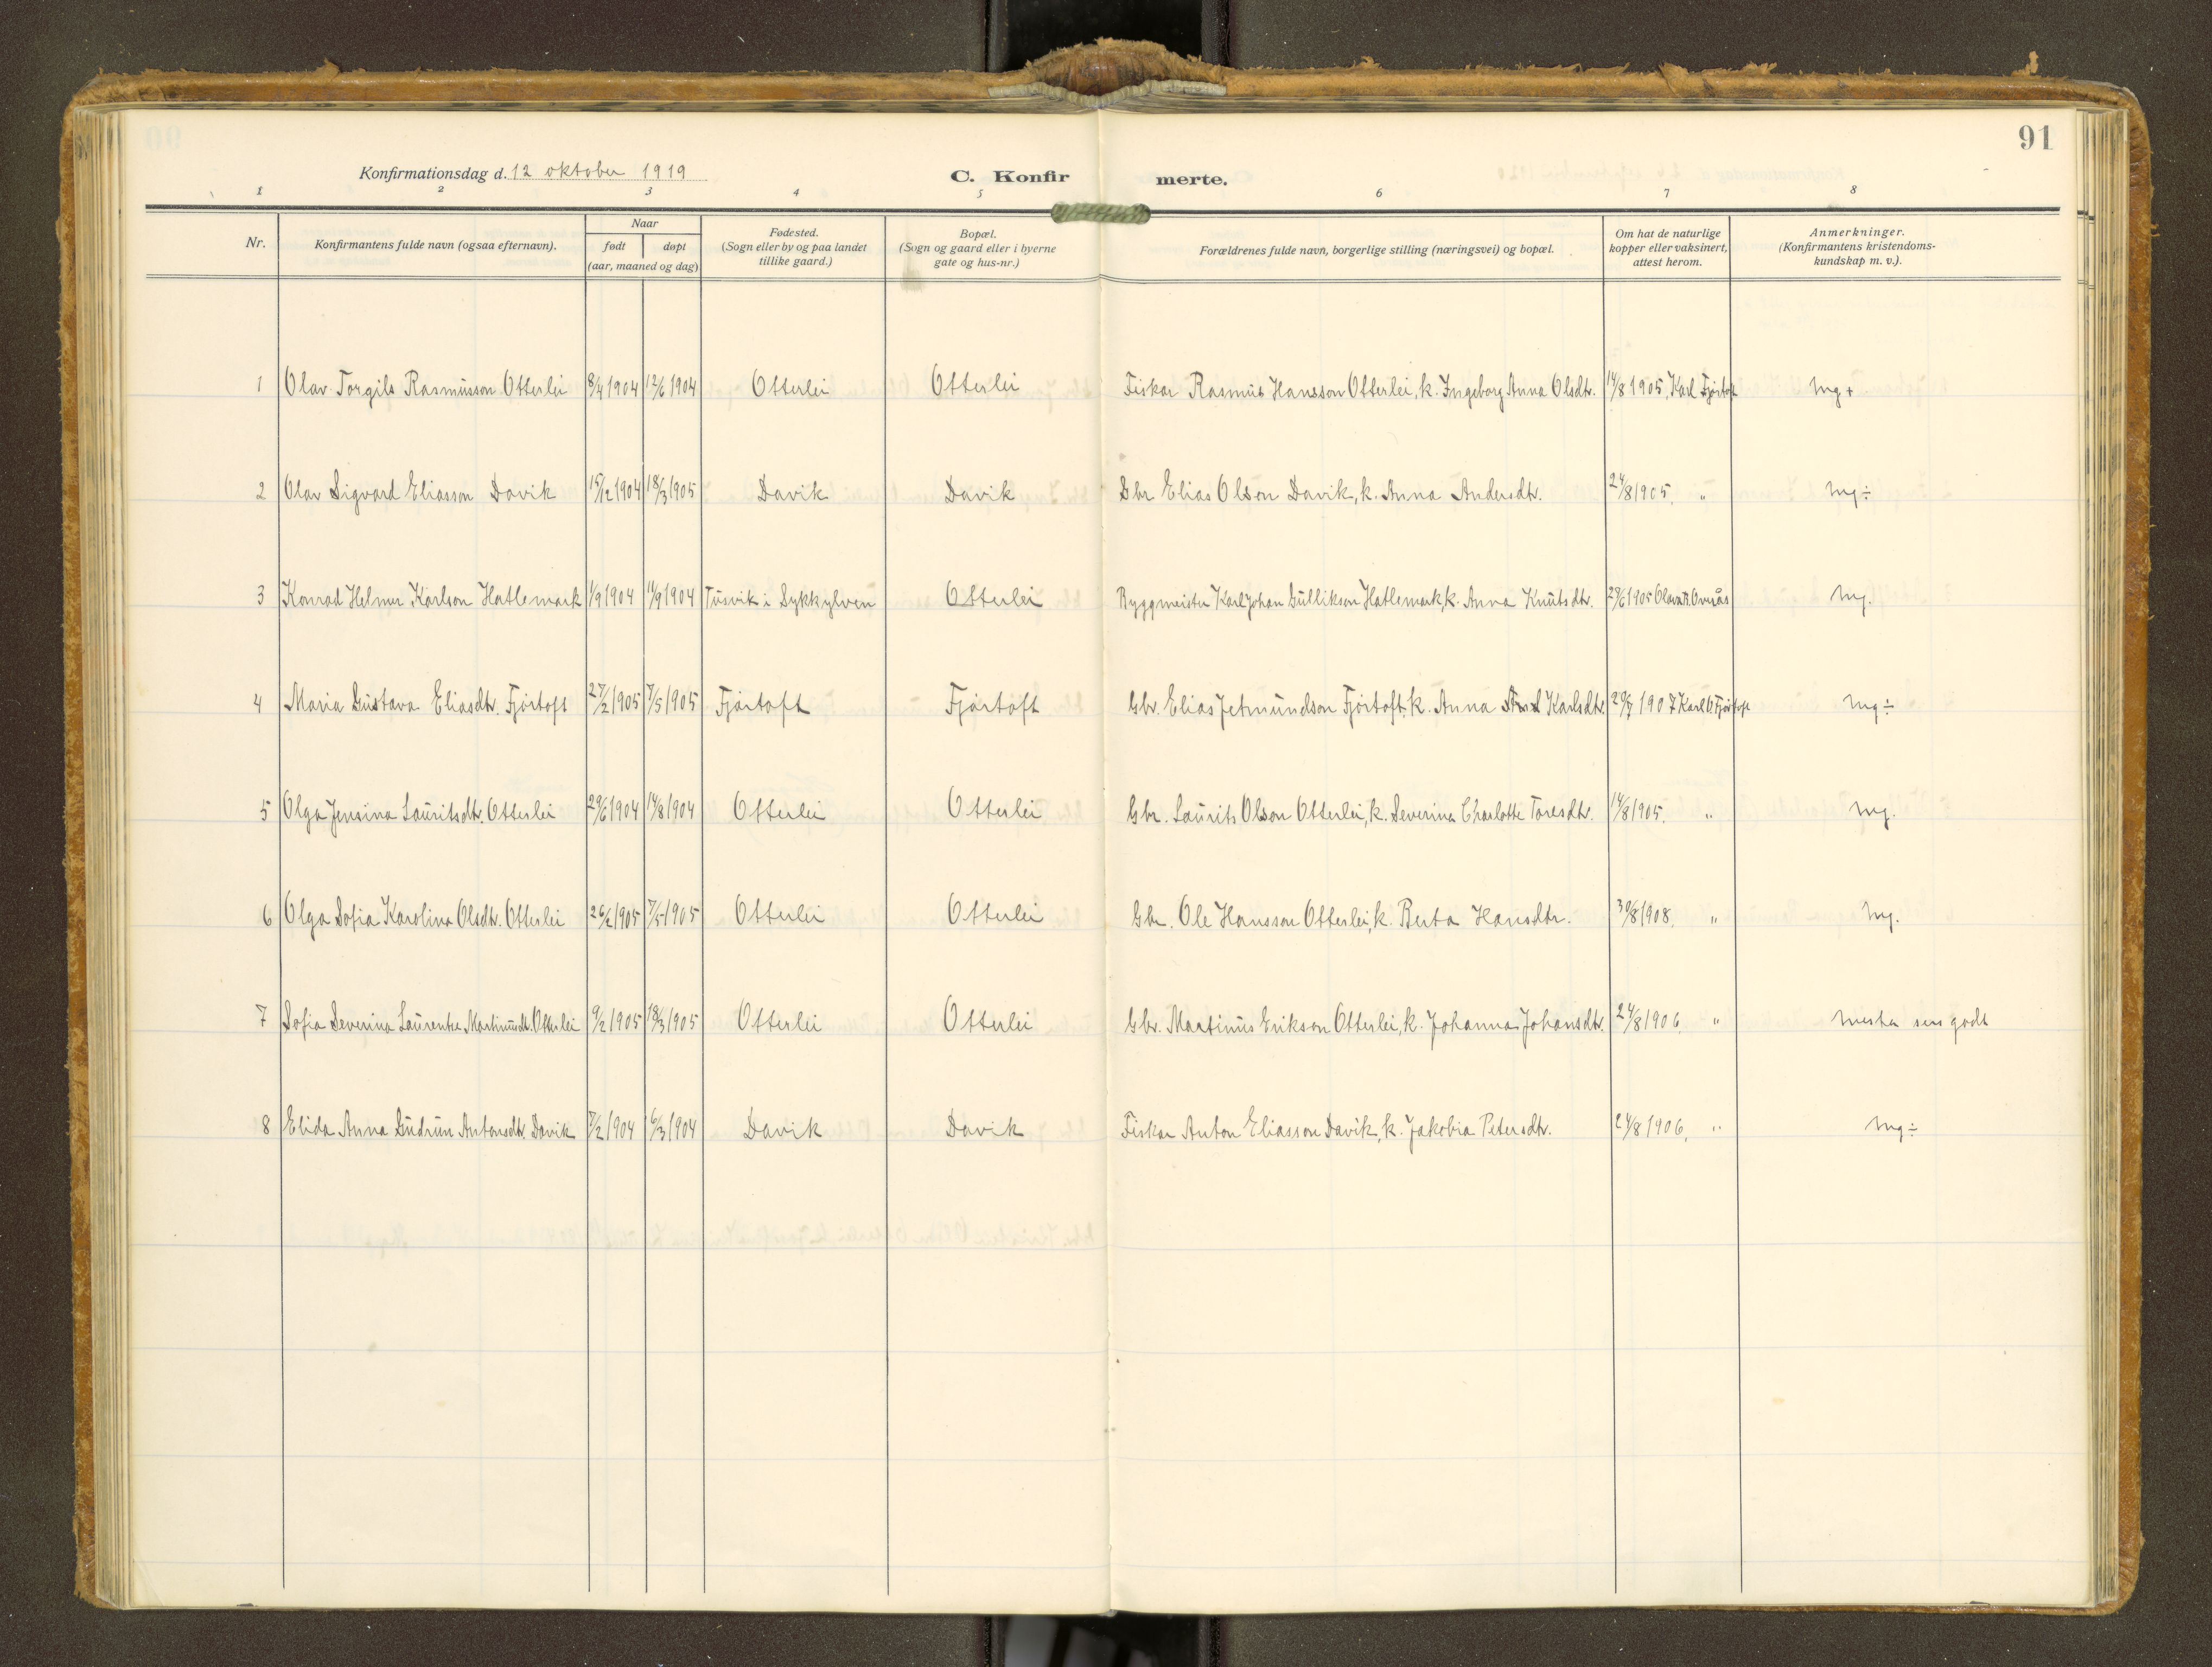 91
Konfirmationsdag d. 12 oktober 1919 C. Konfir merte.
1 2 3 4 5 6 7 8
Nr. Konfirmantens fulde navn (ogsaa efternavn). Naar født døpt (aar, maaned og dag) Fødested. (Sogn eller by og paa landet tillike gaard.) Bopæl. (Sogn og gaard eller i byerne gate og hus-nr.) Forældrenes fulde navn, borgerlige stilling (næringsvei) og bopæl. Om hat de naturlige kopper eller vaksinert, attest herom. Anmerkninger. (Konfirmantens kristendoms-kundskap m. v.).
1 Olav Torgils Rasmusson Otterlei 8/4 1904 12/6 1904 Otterlei Otterlei Fiskar Rasmus Hansson Otterlei, k. Ingeborg Anna Olsdtr. 14/8 1905, Karl Fjørtoft Mg +
2 Olav Sigvard Eliasson Davik 15/12 1904 18/3 1905 Davik Davik Gbr Elias Olson Davik, k. Anna Andersdtr. 24/8 1905. " Mg ÷
3 Konrad Helmer Karlson Hatlemark 1/9 1904 11/9 1904 Tusvik i Sykkylven Otterlei Byggmeister Karl Johan Gullikson Hatlemark, k. Anna Knutsdtr. 29/6 1905 Overås Mg.
4 Maria Gustava Eliasdtr. Fjørtoft 27/2 1905 7/5 1905 Fjørtoft Fjørtoft Gbr. Elias Jetmundson Fjørtoft, k. Anna Karlsdtr. 1907 Karl Fjørtoft Mg ÷
5 Olga Jensina Lauritsdtr. Otterlei 29/6 1904 14/8 1904 Otterlei Otterlei Gbr. Laurits Olson Otterlei, k. Severina Charlotte Toresdtr. 14/8 1905. " Mg.
6 Olga Sofia Karolina Olsdtr. Otterlei 26/2 1905 7/5 1905 Otterlei Otterlei Gbr. Ole Hansson Otterlei, k. Berta Hansdtr. 30/8 1908. " Mg.
7 Sofia Severina Laurentse Martinusdt. Otterlei 9/2 1905 18/3 1905 Otterlei Otterlei Gbr. Martinus Erikson Otterlei, k. Johanna Johansdtr. 24/8 1906. " mesta sers godt
8 Elida Anna Gudrun Antonsdtr. Davik 7/2 1904 6/3 1904 Davik Davik Fiskar Anton Eliasson Davik, k. Jakobia Petersdtr. 24/8 1906. " Mg ÷